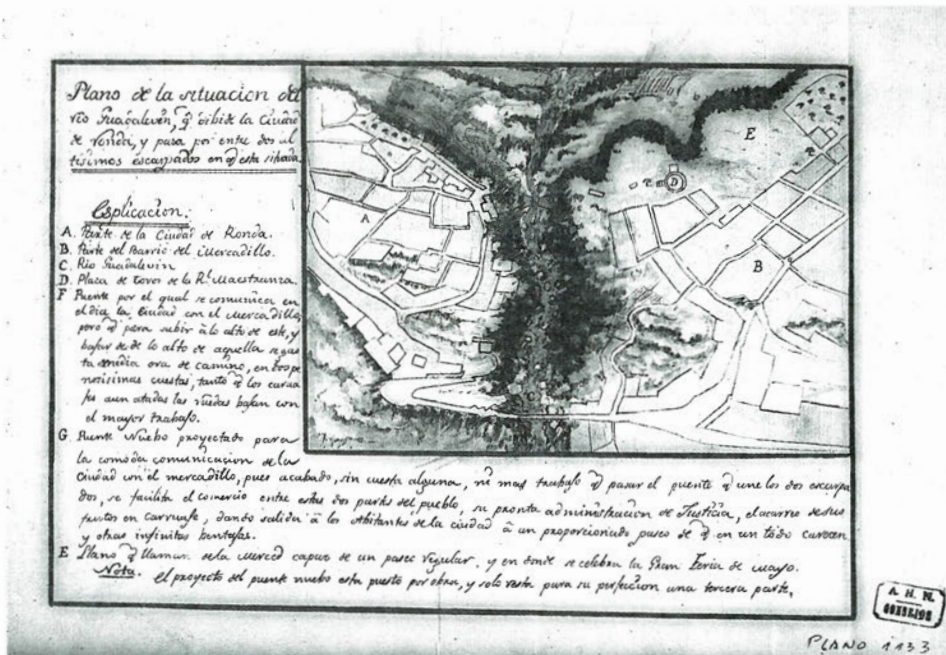 Plano de la situacion del
rio Guadalevin, q̃ divide la Ciudad
de Ronda, y pasa por entre dos al
tisimos escarpados en q̃ esta situada.
Esplicacion.
A. Parte de la Ciudad de Ronda.
B. Parte del Barrio del Mercadillo.
C. Rio Guadalevin
D. Placa de toros de la Rl. Maestranza.
F Puente por el qual se comunica en
el dia la Ciudad con el mercadillo,
pero q̃ para subir à lo alto de este, y
bajar desde lo alto de aquella se gas
ta media ora de camino, en dos pe
nosisimas cuestas, tanto q̃ los carua
jes aun atadas las ruedas bajan con
el mayor trabajo.
G. Puente Nuebo proyectado para
la comoda comunicacion de la
Ciudad con el mercadillo, pues acabado, sin cuesta alguna, ni mas trabajo q̃ pasar el puente q̃ une los dos escarpa
dos, se facilita el comercio entre estas dos partes del pueblo, su pronta administracion de Justicia, el acarreo de sus
frutos en carruaje, dando salida à los abitantes de la ciudad à un proporcionado paseo de q̃ en un todo carecen
y otras infinitas bentajas.
E Llano q̃ llaman de la Merced capaz de un paseo regular, y en donde se celebra la Gran Feria de mayo.
Nota. El proyecto del puente nuebo esta puesto por obra, y solo resta para su perfeccion una tercera parte.
A
B
C
D
E
A. H. N.
CONSEJOS
PLANO 1133